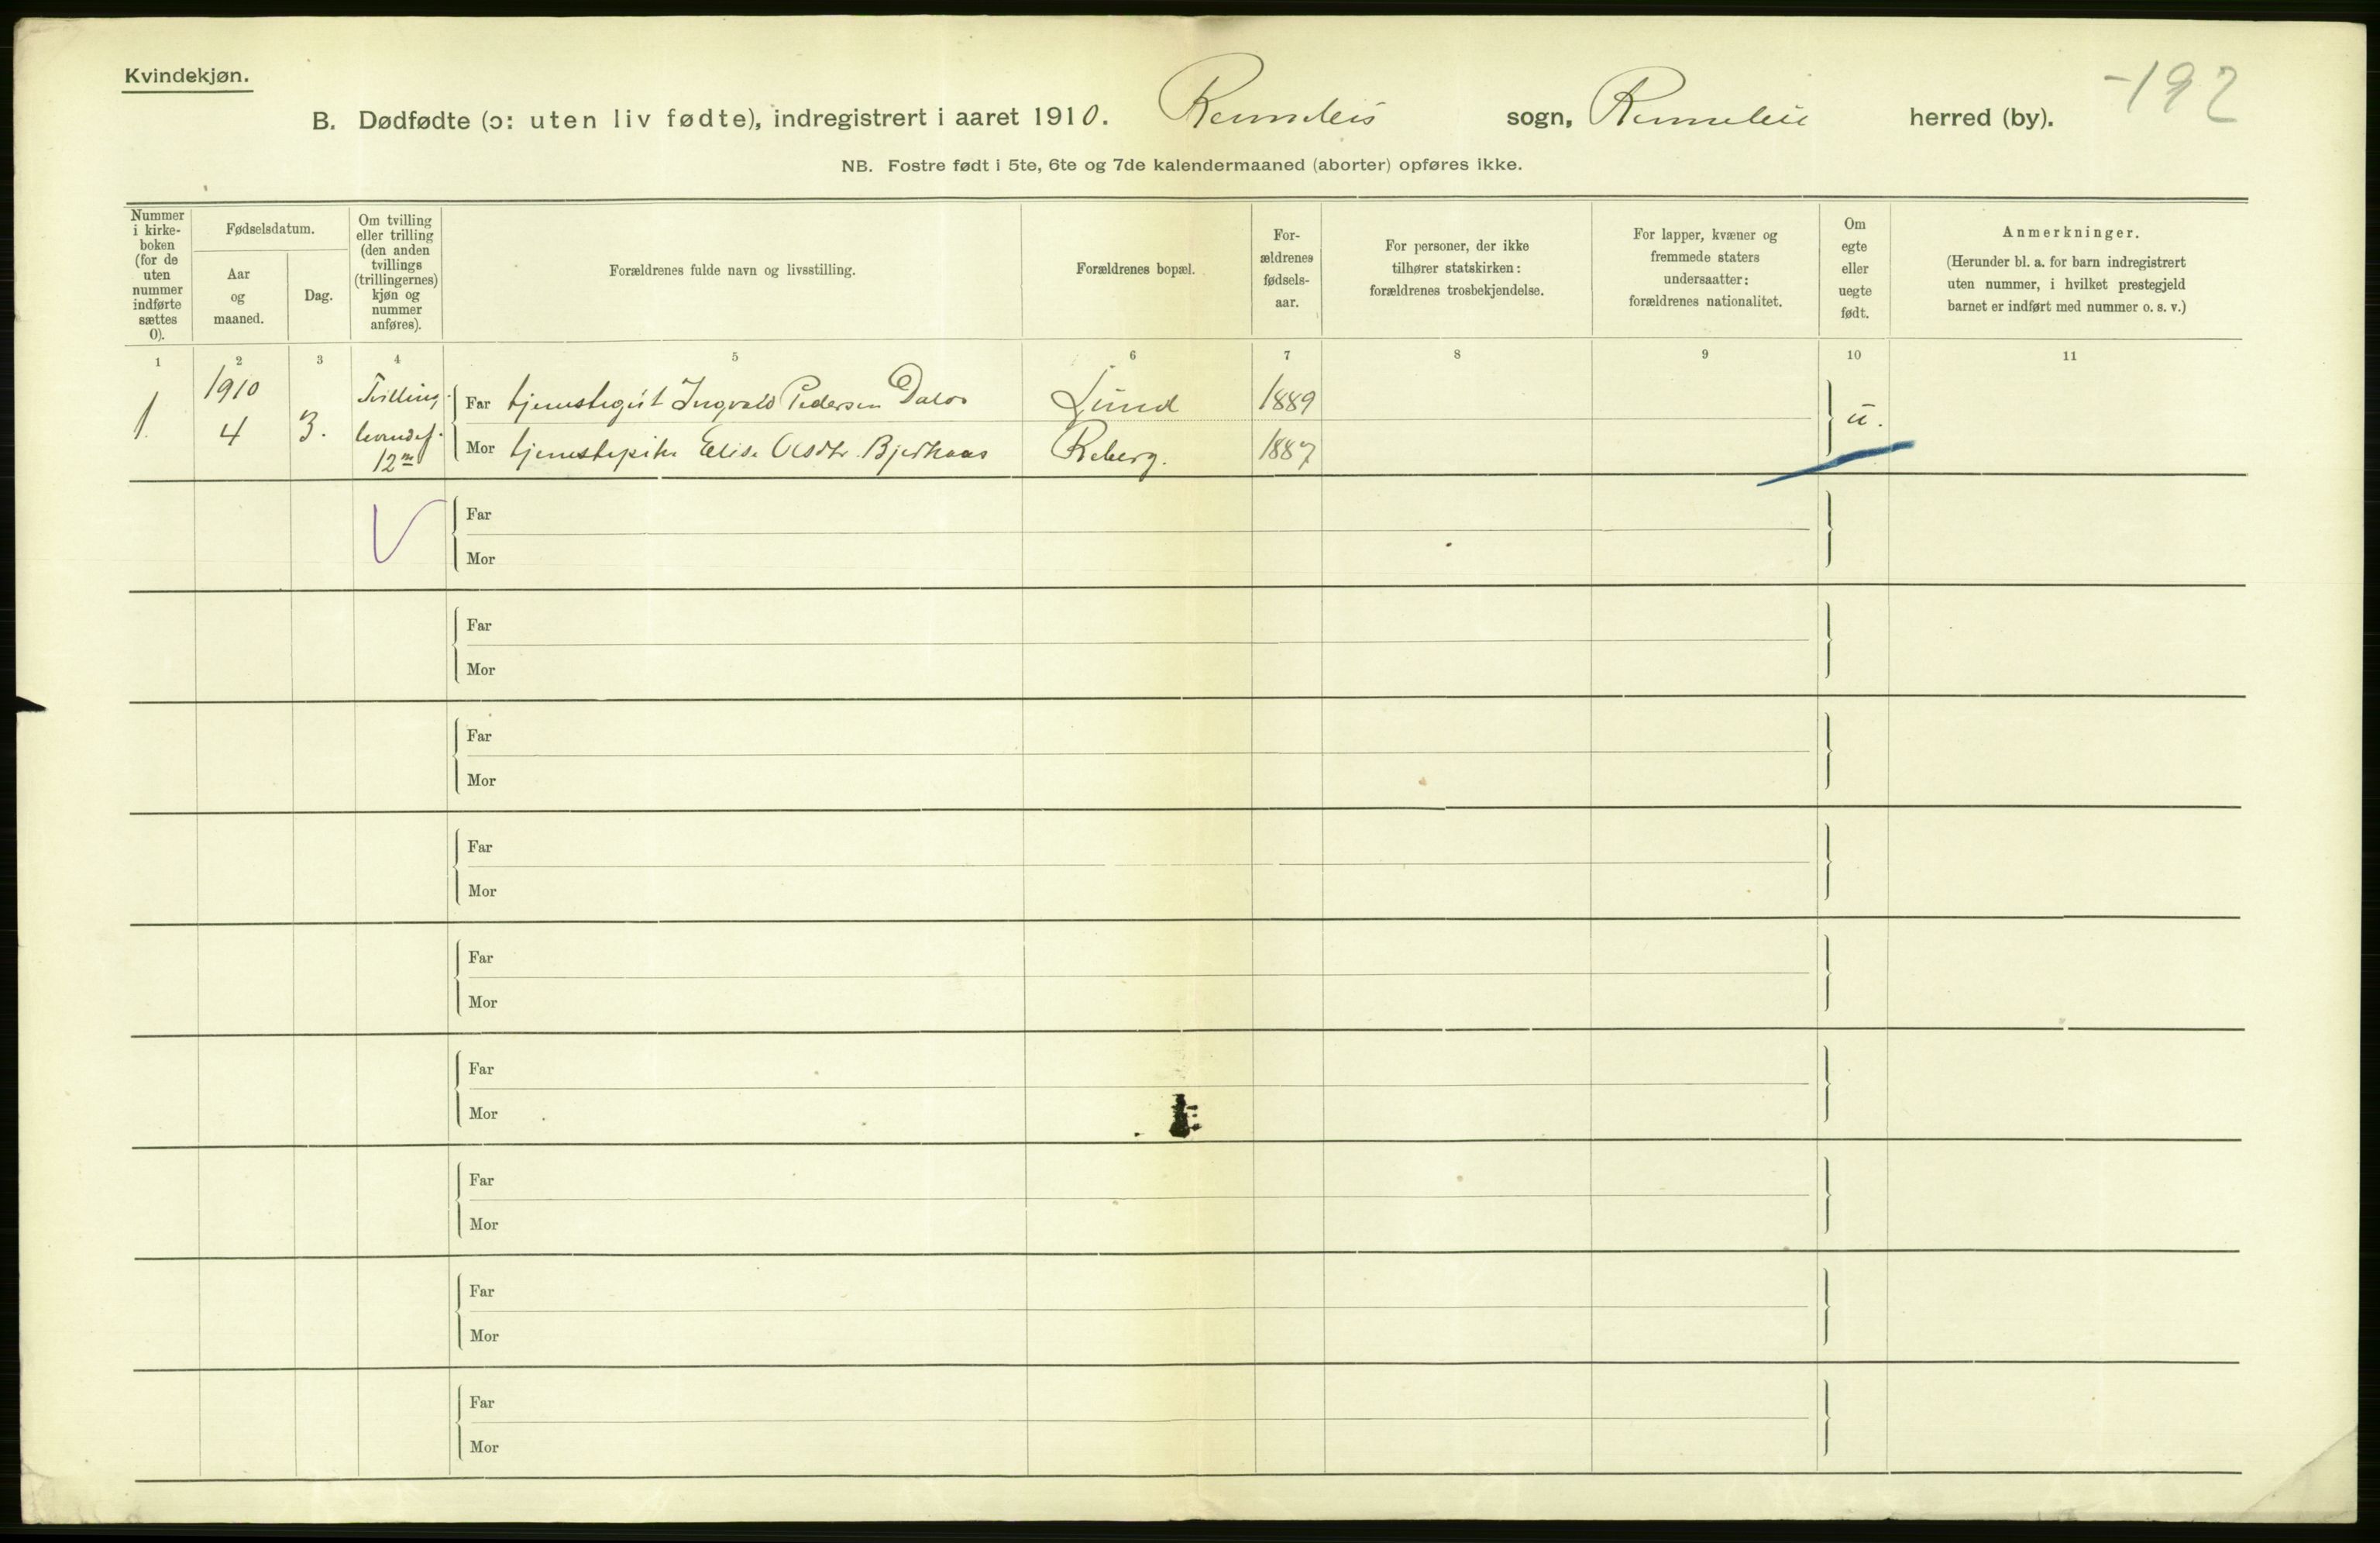 Kvindekjøn.
-192
B. Dødfødte (ɔ: uten liv fødte), indregistrert i aaret 1910. sogn, herred (by).
NB. Fostre født i 5te, 6te og 7de kalendermaaned (aborter) opføres ikke.
Nummer
i kirke-
boken
(for de
uten
nummer
indførte
sættes
0).
Fødselsdatum.
Aar
og
maaned.
Dag.
Om tvilling
eller trilling
(den anden
tvillings
(trillingernes)
kjøn og
nummer
anføres).
Forældrenes fulde navn og livsstilling.
Forældrenes bopæl.
For-
ældrenes
fødsels-
aar.
For personer, der ikke
tilhører statskirken:
forældrenes trosbekjendelse.
For lapper, kvæner og
fremmede staters
undersaatter:
forældrenes nationalitet.
Om
egte
eller
uegte
født.
Anmerkninger.
(Herunder bl. a. for barn indregistrert
uten nummer, i hvilket prestegjeld
barnet er indført med nummer o. s. v.)
1 2 3 4 5 6 7 8 9 10 11
1.
1910
4
3.
Tvilling
levendef.
12
Far tjenestegut Ingvald Pedersen Lund 1889
Mor tjenestepike Elise Olsdtr. Reberg. 1887
u.
Far
Mor
Far
Mor
Far
Mor
Far
Mor
Far
Mor
Far
Mor
Far
Mor
Far
Mor
Far
Mor